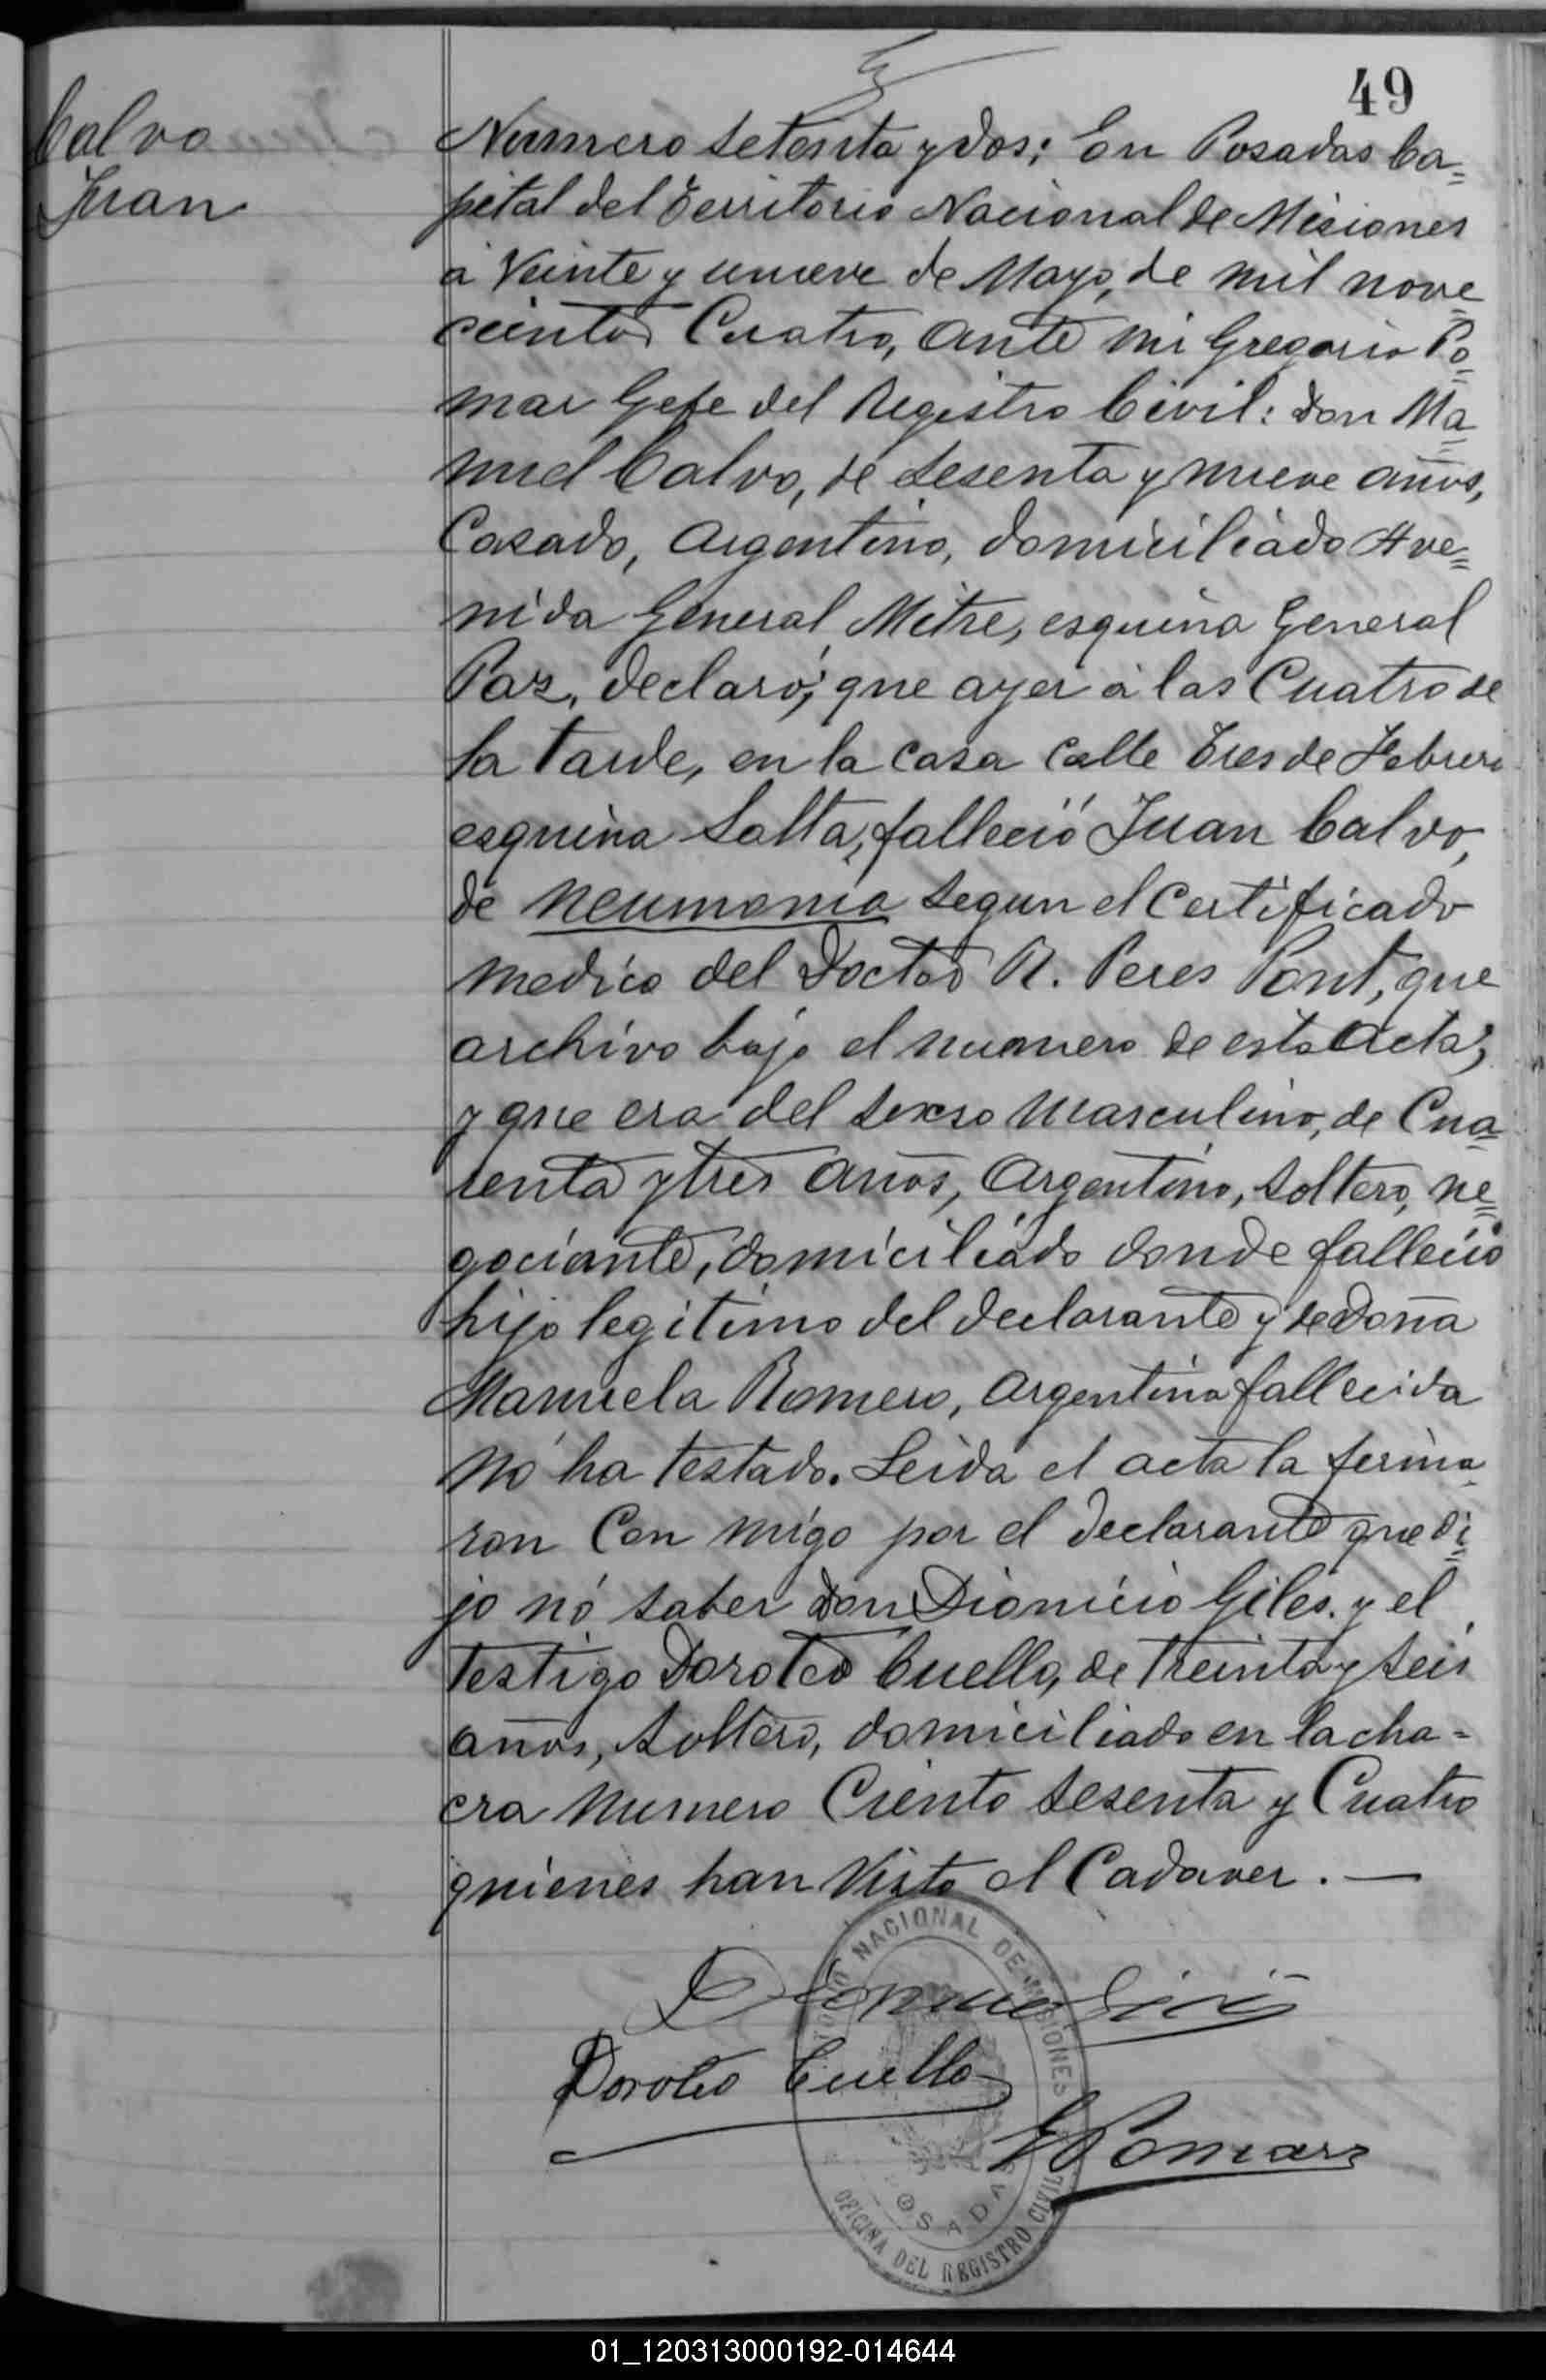 49
Calvo
Juan
Numero setenta y dos; En Posadas Ca=
pital del Territorio Nacional de Misiones
á Veinte y nueve de Mayo, de mil nove=
cientos Cuatro, ante mi Gregorio Po=
mar Gefe del Registro Civil: don Ma=
nuel Calvo, de sesenta y nueve años,
Casado, Argentino, domiciliado Ave=
nida General Mitre, esquina General
Paz, declaró; que ayer á las Cuatro de
la tarde, en la casa calle Tres de Febrero
esquina Salta, falleció Juan Calvo,
de neumonia segun el Certificado
medico del Doctor R. Peres Pont, que
archivo bajo el numero de esta acta;
y que era del sexso masculino, de Cua=
renta y tres años, Argentino, soltero, ne=
gociante, domiciliado donde falleció
hijo legitimo del declarante y de doña
Manuela Romero, Argentina fallecida
nó ha testado. Leida el acta la firma=
ron Con migo por el declarante que di=
jo nó saber don Dionicio Giles. y el
testigo Doroteo Cuello, de treinta y seis
años, soltero, domiciliado en la cha=
cra numero Ciento sesenta y Cuatro
quienes han visto el Cadaver. —
Doroteo Cuello
GPomar
TORIO NACIONAL DE MISIONES
POSADAS
OFICINA DEL REGISTRO CIVIL
01_120313000192-014644